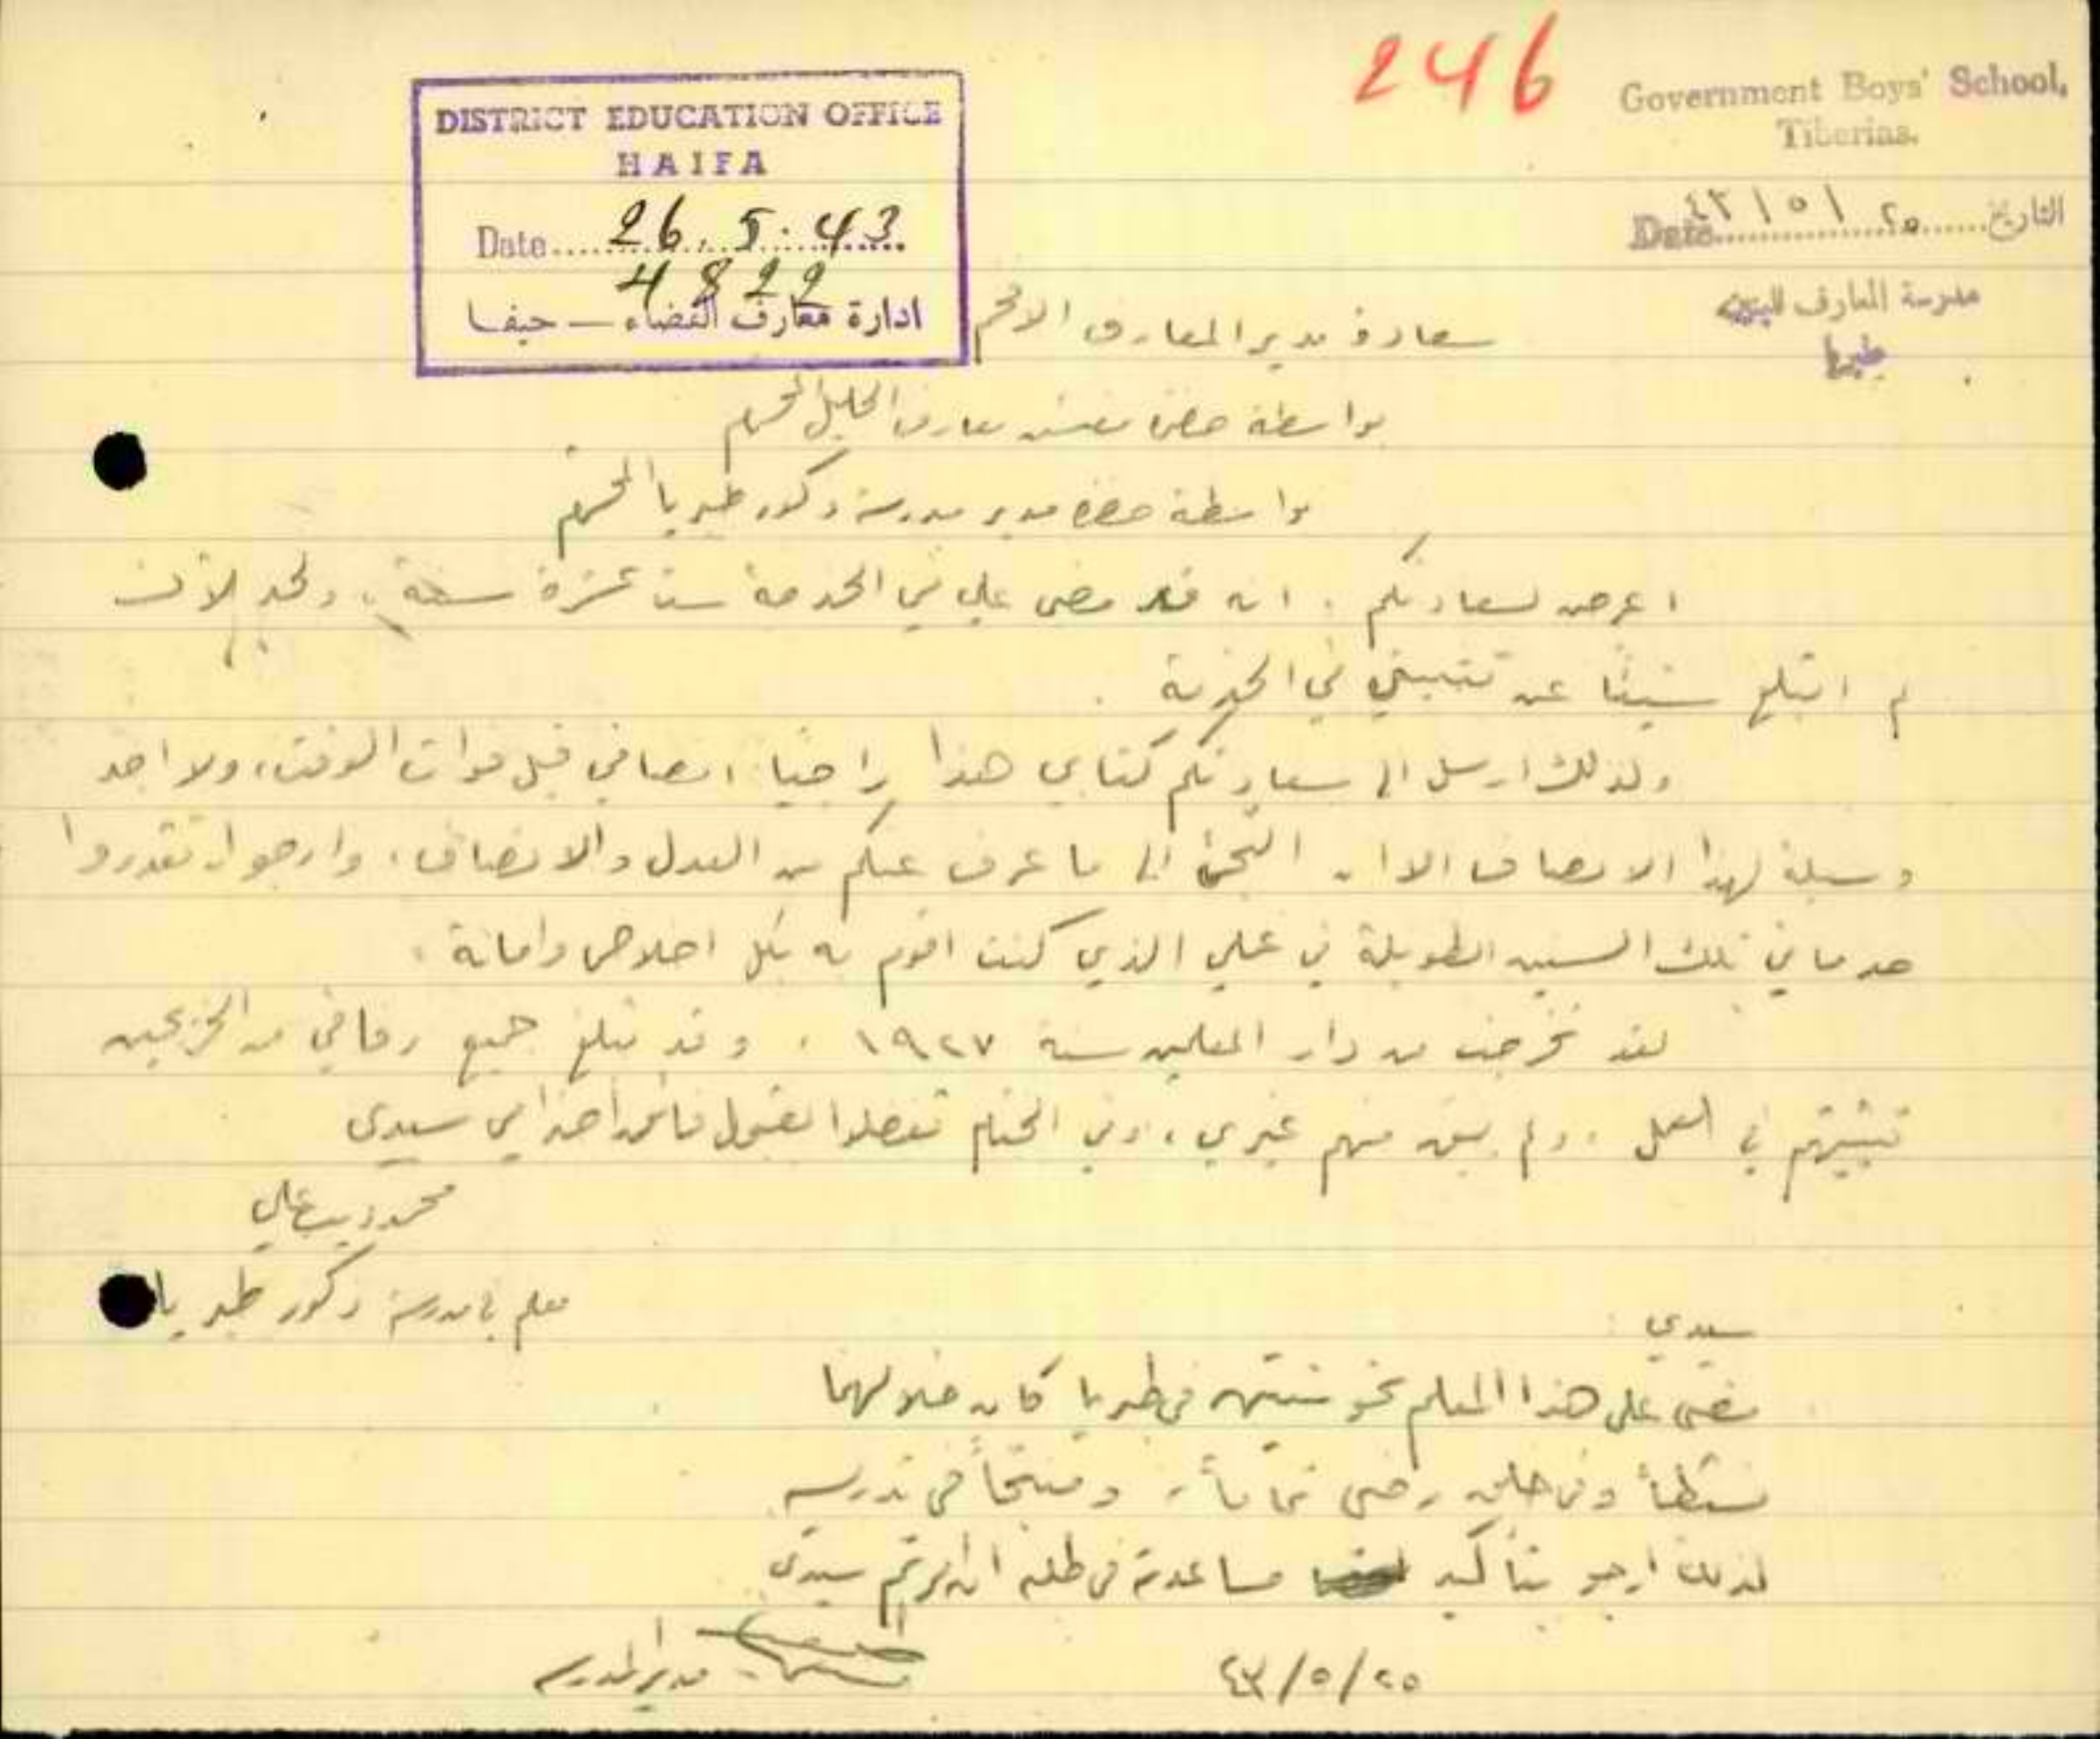 246
Government Boys' School,
Tiberias.
التاريخ ٢٥ / ٥ / ٤٣ Date
مدرسة المعارف للبنين
طبريا
DISTRICT EDUCATION OFFICE
HAIFA
Date 26.5.43
4822
ادارة معارف القضاء — حيفا
سعادة مدير المعارف الافخم
بواسطة حضرة مفتش معارف الجليل المحترم
بواسطة حضرة مدير مدرسة ذكور طبريا المحترم
اعرض لسعادتكم، انه قد مضى علي في الخدمة ست عشرة سنة، ولحد الآن
لم اتبلغ شيئا عن تثبيتي في الخدمة.
ولذلك ارسل الى سعادتكم كتابي هذا راجيا انصافي قبل فوات الوقت، ولا اجد
وسيلة لهذا الانصاف الا ان التجئ الى ما عرف عنكم من العدل والانصاف، وارجو ان تقدروا
خدماتي تلك السنين الطويلة في عملي الذي كنت اقوم به بكل اخلاص وامانة.
لقد تخرجت من دار المعلمين سنة ١٩٢٧، وقد تبلغ جميع رفاقي من الخريجين
تثبيتهم في العمل، ولم يبق منهم غيري، وفي الختام تفضلوا بقبول فائق احترامي سيدي
محمد ديب علي
معلم في مدرسة ذكور طبريا
سيدي
مضى على هذا المعلم نحو سنتين في طبريا كان خلالهما
نشيطاً وفي خلق رضي تماماً، ومنتجاً في تدريسه
لذلك ارجو بتأكيد مساعدته في طلبه ان امرتم سيدي
٢٥/٥/٤٣
مدير المدرسة